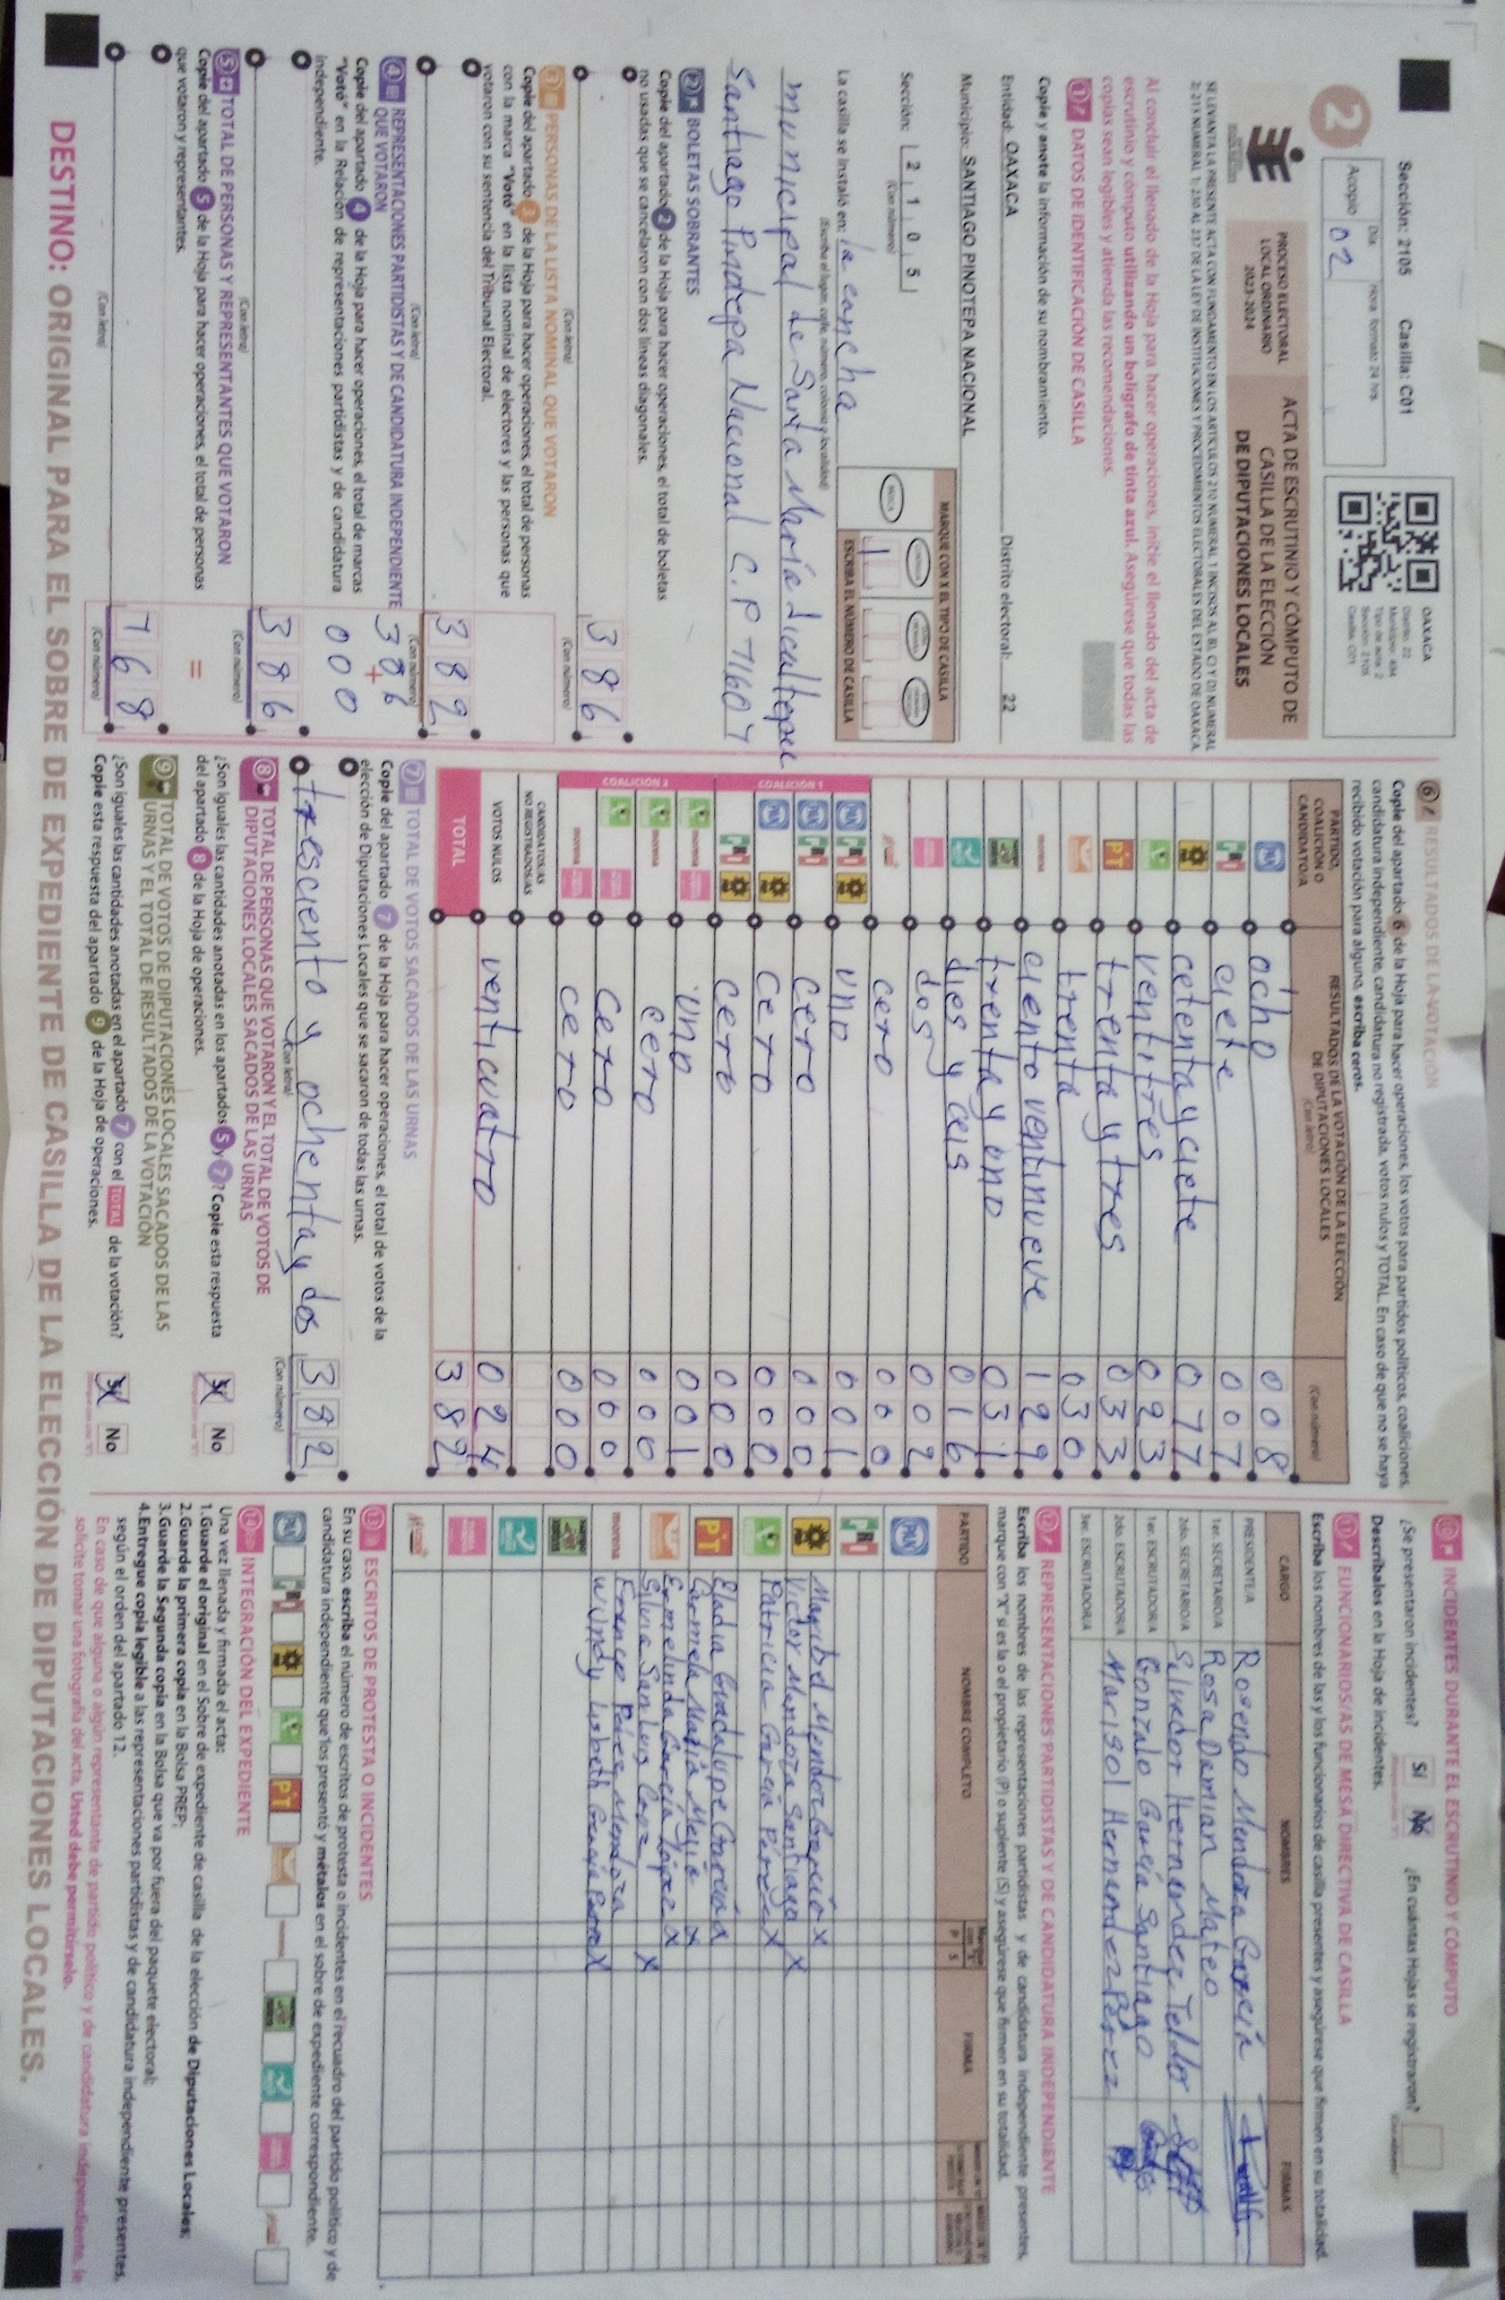 Sección: 2105 Casilla: C01
Día Hora: formato 24 hrs.
2 Acopio 02
OAXACA
Distrito: 22
Tipo de acta: 2
Sección: 2105
Casilla: C01
PROCESO ELECTORAL
LOCAL ORDINARIO
2023-2024
ACTA DE ESCRUTINIO Y CÓMPUTO DE
CASILLA DE LA ELECCIÓN
DE DIPUTACIONES LOCALES
Al concluir el llenado de la Hoja para hacer operaciones, inicie el llenado del acta de
escrutinio y cómputo utilizando un bolígrafo de tinta azul. Asegúrese que todas las
copias sean legibles y atienda las recomendaciones.
1 DATOS DE IDENTIFICACIÓN DE CASILLA
Copie y anote la información de su nombramiento.
Entidad: OAXACA Distrito electoral: 22
Municipio: SANTIAGO PINOTEPA NACIONAL
Sección: 2 1 0 5
(Con número)
MARQUE CON X EL TIPO DE CASILLA
ESCRIBA EL NÚMERO DE CASILLA
1
La casilla se instaló en: la cancha
(Escriba el lugar, calle, número, colonia y localidad)
municipal de Santa María Jicaltepec
Santiago Pinotepa Nacional C.P 71607
2 BOLETAS SOBRANTES
Copie del apartado 2 de la Hoja para hacer operaciones, el total de boletas
no usadas que se cancelaron con dos líneas diagonales.
386
(Con letra) (Con número)
3 PERSONAS DE LA LISTA NOMINAL QUE VOTARON
Copie del apartado 3 de la Hoja para hacer operaciones, el total de personas
con la marca "Votó" en la lista nominal de electores y las personas que
votaron con su sentencia del Tribunal Electoral.
382
(Con letra) (Con número)
4 REPRESENTACIONES PARTIDISTAS Y DE CANDIDATURA INDEPENDIENTE
QUE VOTARON
+
Copie del apartado 4 de la Hoja para hacer operaciones, el total de marcas
"Votó" en la Relación de representaciones partidistas y de candidatura
independiente.
000
386
(Con letra) (Con número)
5 TOTAL DE PERSONAS Y REPRESENTANTES QUE VOTARON
Copie del apartado 5 de la Hoja para hacer operaciones, el total de personas
que votaron y representantes.
=
768
(Con letra) (Con número)
6 RESULTADOS DE LA VOTACIÓN
Copie del apartado 6 de la Hoja para hacer operaciones, los votos para partidos políticos, coaliciones,
candidatura independiente, candidatura no registrada, votos nulos y TOTAL. En caso de que no se haya
recibido votación para alguno, escriba ceros.
PARTIDO,
COALICIÓN O
CANDIDATO/A
RESULTADOS DE LA VOTACIÓN DE LA ELECCIÓN
DE DIPUTACIONES LOCALES
(Con letra) (Con número)
PAN ocho 008
PRI ciete 007
PRD cetenta y ciete 077
ventitres 023
PT trenta y tres 033
trenta 030
morena ciento ventinueve 129
trenta y uno 031
dies y ceis 016
dos 002
cero 000
COALICIÓN 1
uno 001
cero 000
cero 000
cero 000
COALICIÓN 2
uno 001
cero 000
cero 000
cero 000
CANDIDATOS/AS
NO REGISTRADOS/AS
VOTOS NULOS venticuatro 024
TOTAL 382
7 TOTAL DE VOTOS SACADOS DE LAS URNAS
Copie del apartado 7 de la Hoja para hacer operaciones, el total de votos de la
elección de Diputaciones Locales que se sacaron de todas las urnas.
tresciento y ochenta y dos 382
(Con letra) (Con número)
8 TOTAL DE PERSONAS QUE VOTARON Y EL TOTAL DE VOTOS DE
DIPUTACIONES LOCALES SACADOS DE LAS URNAS
¿Son iguales las cantidades anotadas en los apartados 5 y 7? Copie esta respuesta
del apartado 8 de la Hoja de operaciones.
Sí No
9 TOTAL DE VOTOS DE DIPUTACIONES LOCALES SACADOS DE LAS
URNAS Y EL TOTAL DE RESULTADOS DE LA VOTACIÓN
¿Son iguales las cantidades anotadas en el apartado 7 con el TOTAL de la votación?
Copie esta respuesta del apartado 9 de la Hoja de operaciones.
Sí No
10 INCIDENTES DURANTE EL ESCRUTINIO Y CÓMPUTO
¿Se presentaron incidentes? Sí No ¿En cuántas Hojas se registraron?
Descríbalos en la Hoja de incidentes.
11 FUNCIONARIOS/AS DE MESA DIRECTIVA DE CASILLA
Escriba los nombres de las y los funcionarios de casilla presentes y asegúrese que firmen en su totalidad.
CARGO NOMBRES FIRMAS
PRESIDENTE/A Rosendo Mendoza García
1er. SECRETARIO/A Rosa Damian Mateo
2do. SECRETARIO/A Silvador Hernandez
1er. ESCRUTADOR/A Gonzalo García Santiago
2do. ESCRUTADOR/A Marisol Hernandez Pérez
3er. ESCRUTADOR/A
12 REPRESENTACIONES PARTIDISTAS Y DE CANDIDATURA INDEPENDIENTE
Escriba los nombres de las representaciones partidistas y de candidatura independiente presentes,
marque con "X" si es la o el propietario (P) o suplente (S) y asegúrese que firmen en su totalidad.
PARTIDO NOMBRE COMPLETO P S FIRMA
Maribel Mendoz García X
Victor Mendoza Santiago X
Patricia García Pérez X
Eladia Guadalupe García X
Carmela Mejía X
Ermelinda García López X
Silvia San Luis X
Pérez Mendoza
Windy Lisbeth X
13 ESCRITOS DE PROTESTA O INCIDENTES
En su caso, escriba el número de escritos de protesta o incidentes en el recuadro del partido político y de
candidatura independiente que los presentó y métalos en el sobre de expediente correspondiente.
14 INTEGRACIÓN DEL EXPEDIENTE
Una vez llenada y firmada el acta:
1.Guarde el original en el Sobre de expediente de casilla de la elección de Diputaciones Locales;
2.Guarde la primera copia en la Bolsa PREP;
3.Guarde la Segunda copia en la Bolsa que va por fuera del paquete electoral;
4.Entregue copia legible a las representaciones partidistas y de candidatura independiente presentes,
según el orden del apartado 12.
En caso de que alguna o algún representante de partido político y de candidatura independiente, le
solicite tomar una fotografía del acta, Usted debe permitírselo.
DESTINO: ORIGINAL PARA EL SOBRE DE EXPEDIENTE DE CASILLA DE LA ELECCIÓN DE DIPUTACIONES LOCALES.